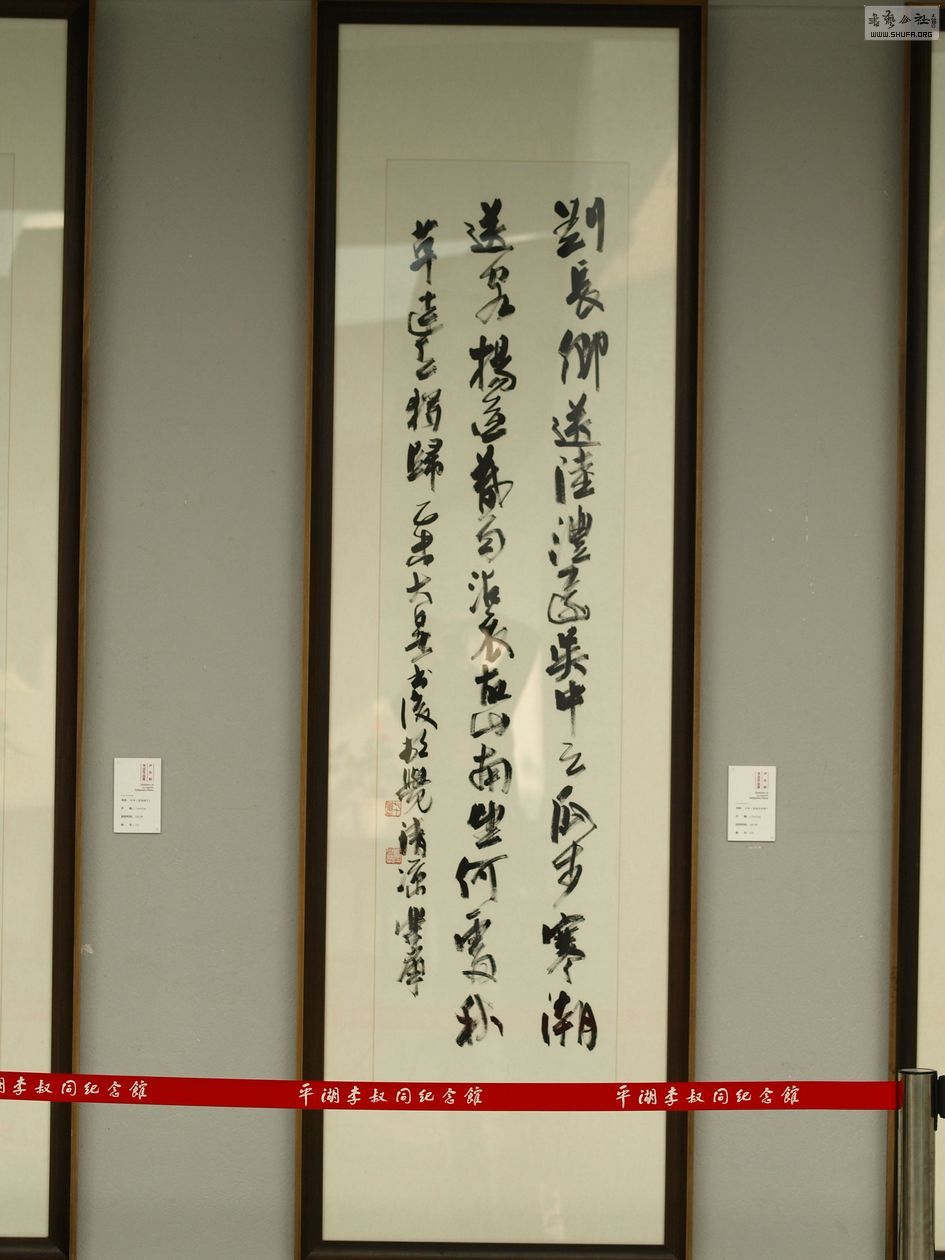 劉長卿送陸澧還吳中云瓜步寒潮
送客楊花暮雨沾衣故山南望何處秋
草連天獨歸 乙未大暑書後頓覺清涼 樂群
湖李叔同纪念館 平湖李叔同纪念館 平湖李叔同纪念館
書藝公社
WWW.SHUFA.ORG